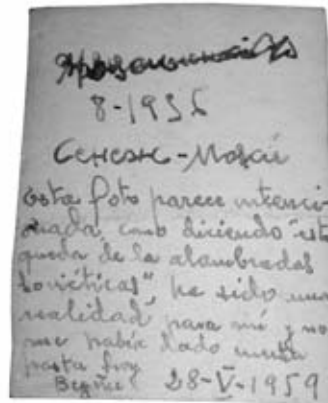 8-1956
Сенеж-Mosçú
esta foto parece intenci-
onada como diciendo "esto
queda de la alambradas
soviéticas" ha sido una
realidad para mí y no
me había dado cuenta
hasta hoy
28-V-1959